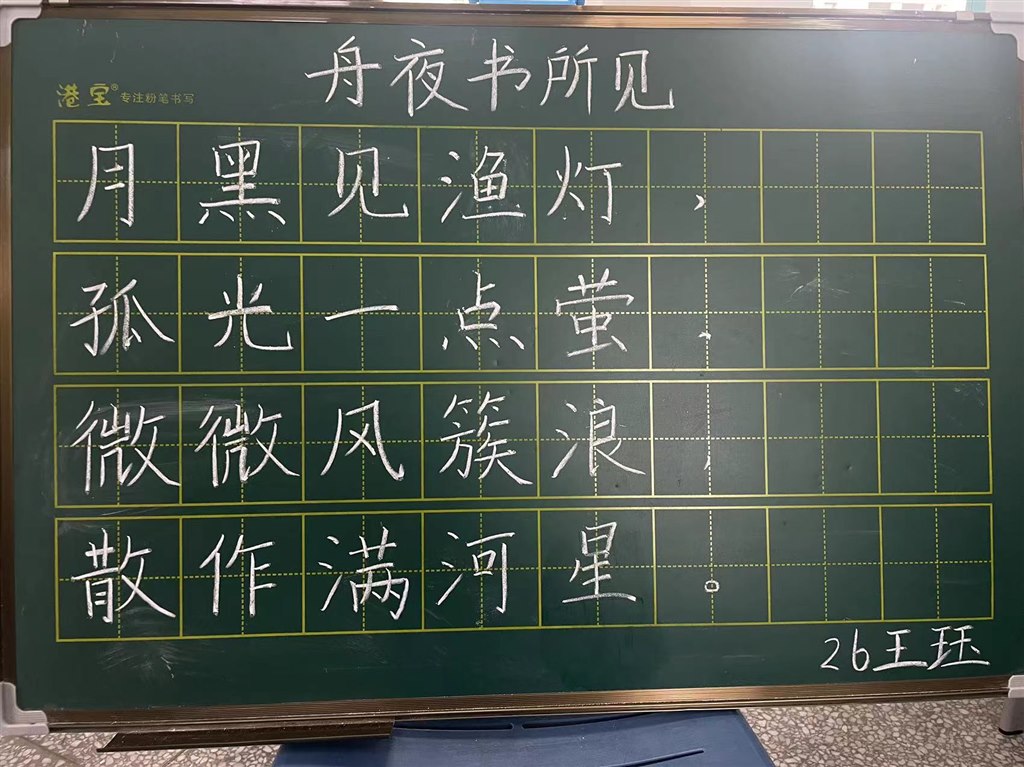 舟夜书所见
港宝® 专注粉笔书写
月黑见渔灯，
孤光一点萤，
微微风簇浪，
散作满河星。
26王珏